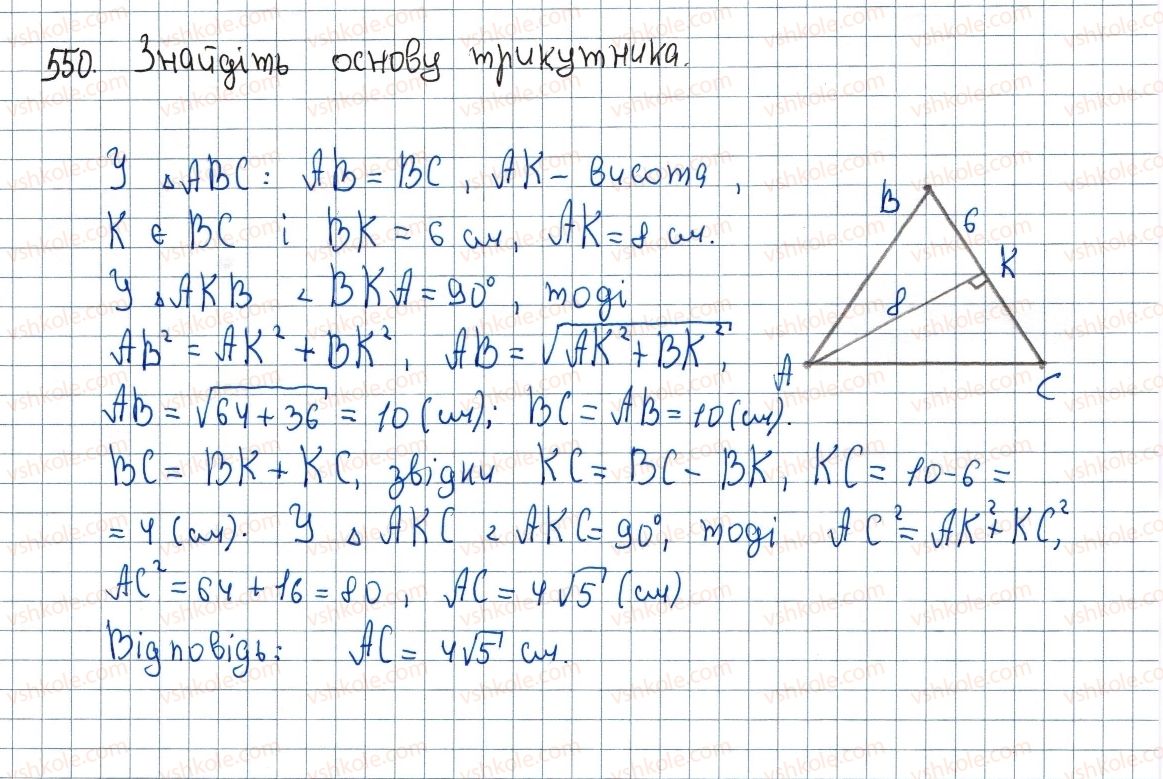 550. Знайдіть основу трикутника.
У △ABC: AB = BC, AK – висота,
K є BC і BK = 6 см, AK = 8 см.
У △AKB ∠BKA = 90°, тоді
AB² = AK² + BK², AB = √AK² + BK²,
AB = √64 + 36 = 10 (см); BC = AB = 10 (см).
BC = BK + KC, звідки KC = BC – BK, KC = 10 – 6 =
= 4 (см). У △AKC ∠AKC = 90°, тоді AC² = AK² + KC²,
AC² = 64 + 16 = 80, AC = 4√5 (см)
Відповідь: AC = 4√5 см.
B
6
K
8
A
C
vshkole.com